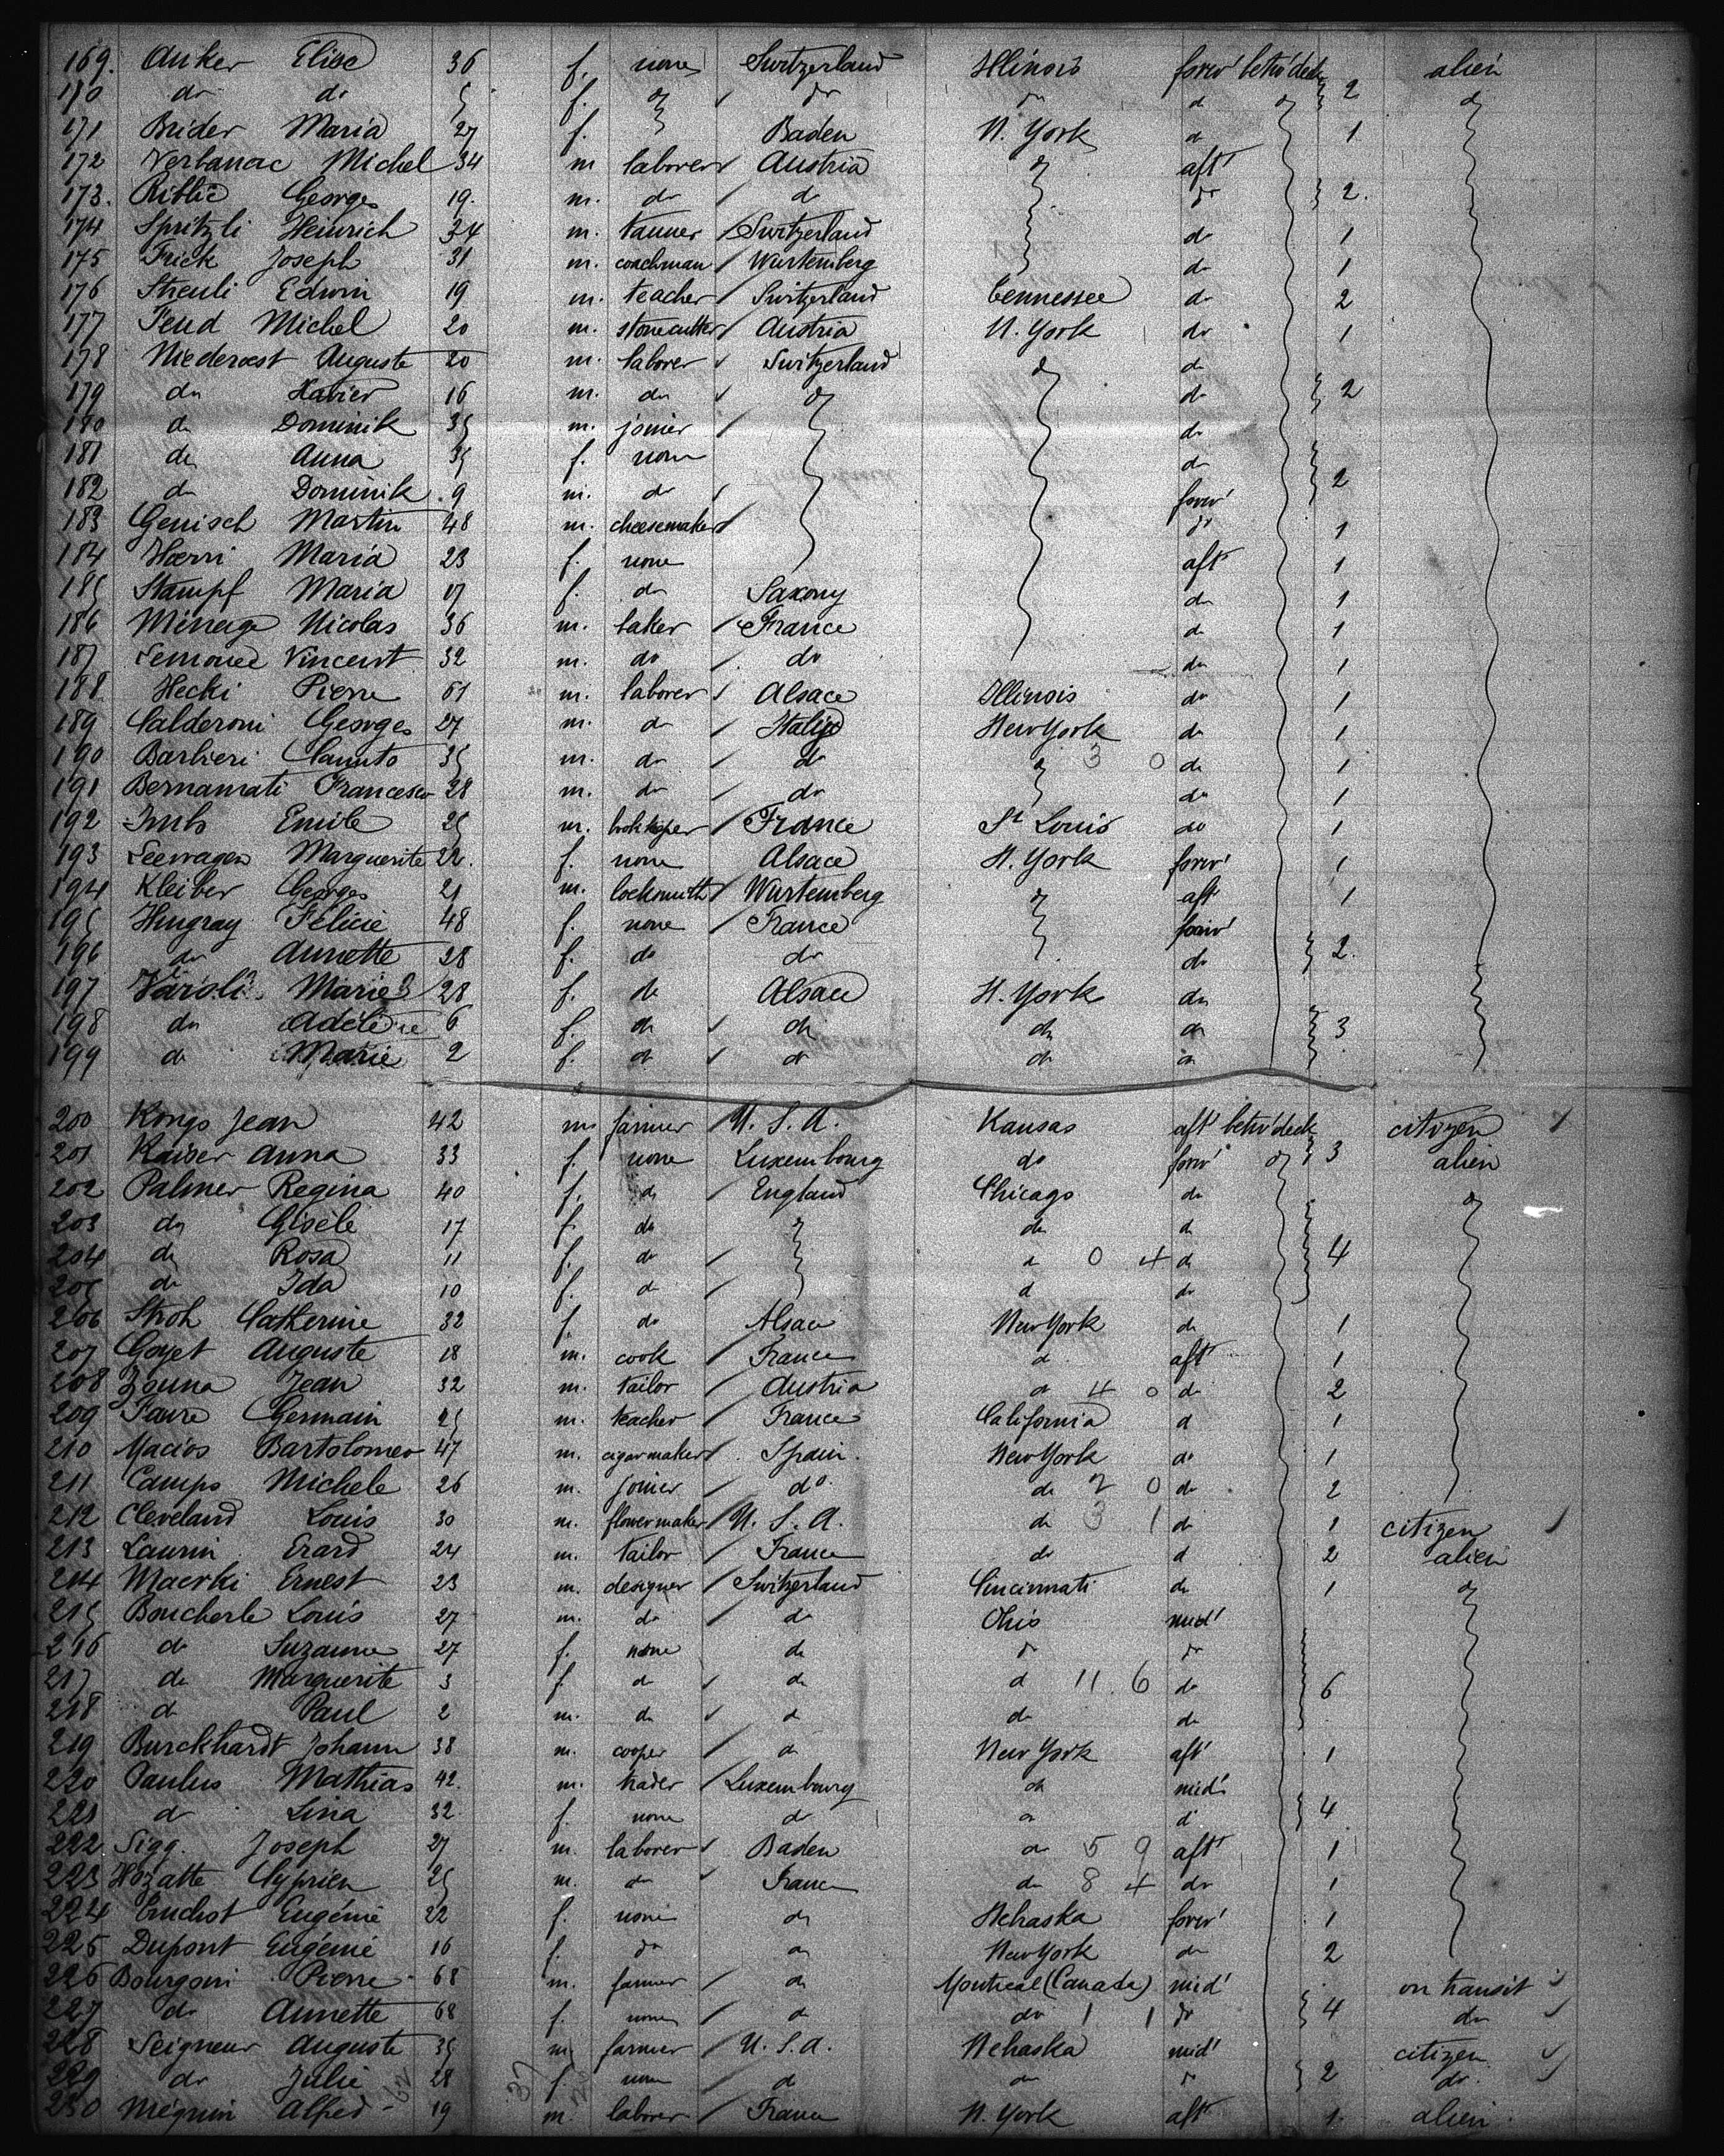 169. Anker Elise 36 f. none Switzerland Illinois forw' betw' deck alien
170 do do 5 f. do do do do do 2 do
171 Brider Maria 27 f. Baden N. York do 1
172 Verbanac Michel 34 m laborer Austria do aft
173. Riblic Georges 19. m. do do do 2.
174 Spritzli Heinrich 34 m. tanner Switzerland do 1
175 Frick Joseph 31 m. coachman Wurtemberg do 1
176 Streuli Edwin 19 m. teacher Switzerland Tennessee do 2
177 Feud Michel 20 m. stonecutter Austria N. York do 1
178 Niederœst Auguste 20 m. laborer Switzerland do do
179 do Xavier 16 m. do do do 2
180 do Dominik 35 m. joiner do
181 do Anna 35 f. none do
182 do Dominik 9 m. do forw' 2
183 Genisch Martin 48 m. cheesemaker do 1
184 Hœrri Maria 23 f. none aft 1
185 Stampf Maria 17 f. do Saxony do 1
186 Ménage Nicolas 36 m. baker France do 1
187 Vincent 32 m. do do do 1
188 Hecki Pierre 61 m. laborer Alsace Illinois do 1
189 Calderoni Georges 27 m. do Italy New York do 1
190 Barbieri Canuto 35 m. do do do 3 0 do 1
191 Bernamati Francesco 28 m. do do do 1
192 Imbs Emile 25 m. bookkeper France St Louis do 1
193 Seewagen Marguerite 22. f. none Alsace N. York forw' 1
194 Kleiber Georges 21 m. locksmith Wurtemberg do aft 1
195 Hingray Félicie 48 f. none France forw'
196 do Annette 28 f. do do do 2.
197 Varoli Marie 28 f. do Alsace N. York do
198 do Adèle 6 f. do do do do 3
199 do Marie 2 f. do do do do
200 Kongs Jean 42 m farmer U. S. A. Kansas aft betw' deck citizen
201 Kaiser Anna 33 f. none Luxembourg do forw' do 3 alien
202 Palmer Regina 40 f. do England Chicago do do
203 do Gisèle 17 f. do do do do
204 do Rosa 11 f. do do 0 4 do 4
205 do Ida 10 f. do do do
206 Stroh Catherine 32 f. do Alsace New York do 1
207 Goyet Auguste 18 m. cook France do aft 1
208 Zouna Jean 32 m. tailor Austria do 4 0 do 2
209 Faure Germain 25 m. teacher France California do 1
210 Macios Bartolomeo 47 m. cigarmaker Spain. New York do 1
211 Camps Michele 26 m. joiner do do 2 0 do 2
212 Cleveland Louis 30 m. flowermaker U. S. A. do 3 1 do 1 citizen
213 Laurin Erard 24 m. tailor France do do 2 alien
214 Maerki Ernest 23 m. designer Switzerland Cincinnati do 1 do
215 Boucherle Louis 27 m. do do Ohio mid'
216 do Suzanne 27 f. none do do do
217 do Marguerite 3 f do do do 11. 6 do 6
218 do Paul 2 m. do do do do
219 Burckhardt Johann 38 m. cooper do New York aft' 1
220 Paulus Mathias 42. m. trader Luxembourg do mid'
221 do Lina 32 f. none do do do 4
222 Sigg Joseph 27 m. laborer Baden do 5 9 aft 1
223 Hozatte Cyprien 25 m. do France do 8 4 do 1
224 Truchot Eugénie 22 f. none do Nebraska forw' 1
225 Dupont Eugénie 16 f. do do New York do 2
226 Bourgoin Pierre 68 m. farmer do Montreal (Canada) mid' on transit
227 do Annette 68 f. none do do 1 1 do 4 do
228 Seigneur Auguste 35 m. farmer U. S. A. Nebraska mid' citizen
229 do Julie 28 f. none do do do 2 do
230 Méguin Alfred 19 m. laborer France N. York aft 1. alien